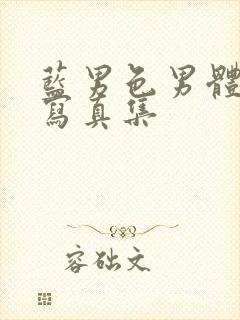 藍男色男體
寫真集
容础文